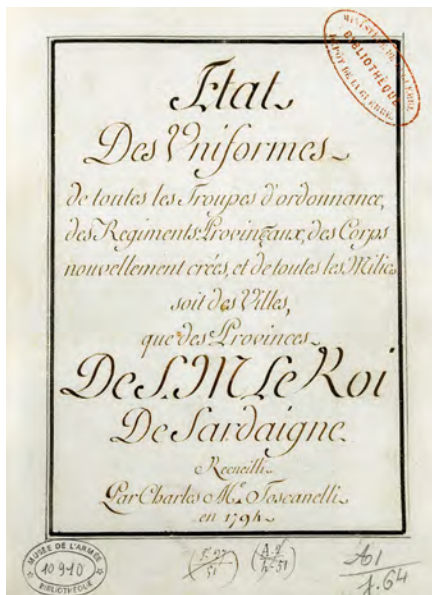 MINISTÈRE DE LA GUERRE
BIBLIOTHÈQUE
DÉPÔT DE LA GUERRE
Etat
Des Uniformes
de toutes les Troupes d'ordonnance,
des Regiments Provinçaux, des Corps
nouvellement crées, et de toutes les Milices
soit des Villes,
que des Provinces
De S. M. Le Roi
De Sardaigne.
Recueilli
Par Charles M.e Toscanelli
en 1794
MUSÉE DE L'ARMÉE
10910
BIBLIOTHÈQUE
A1
J.64